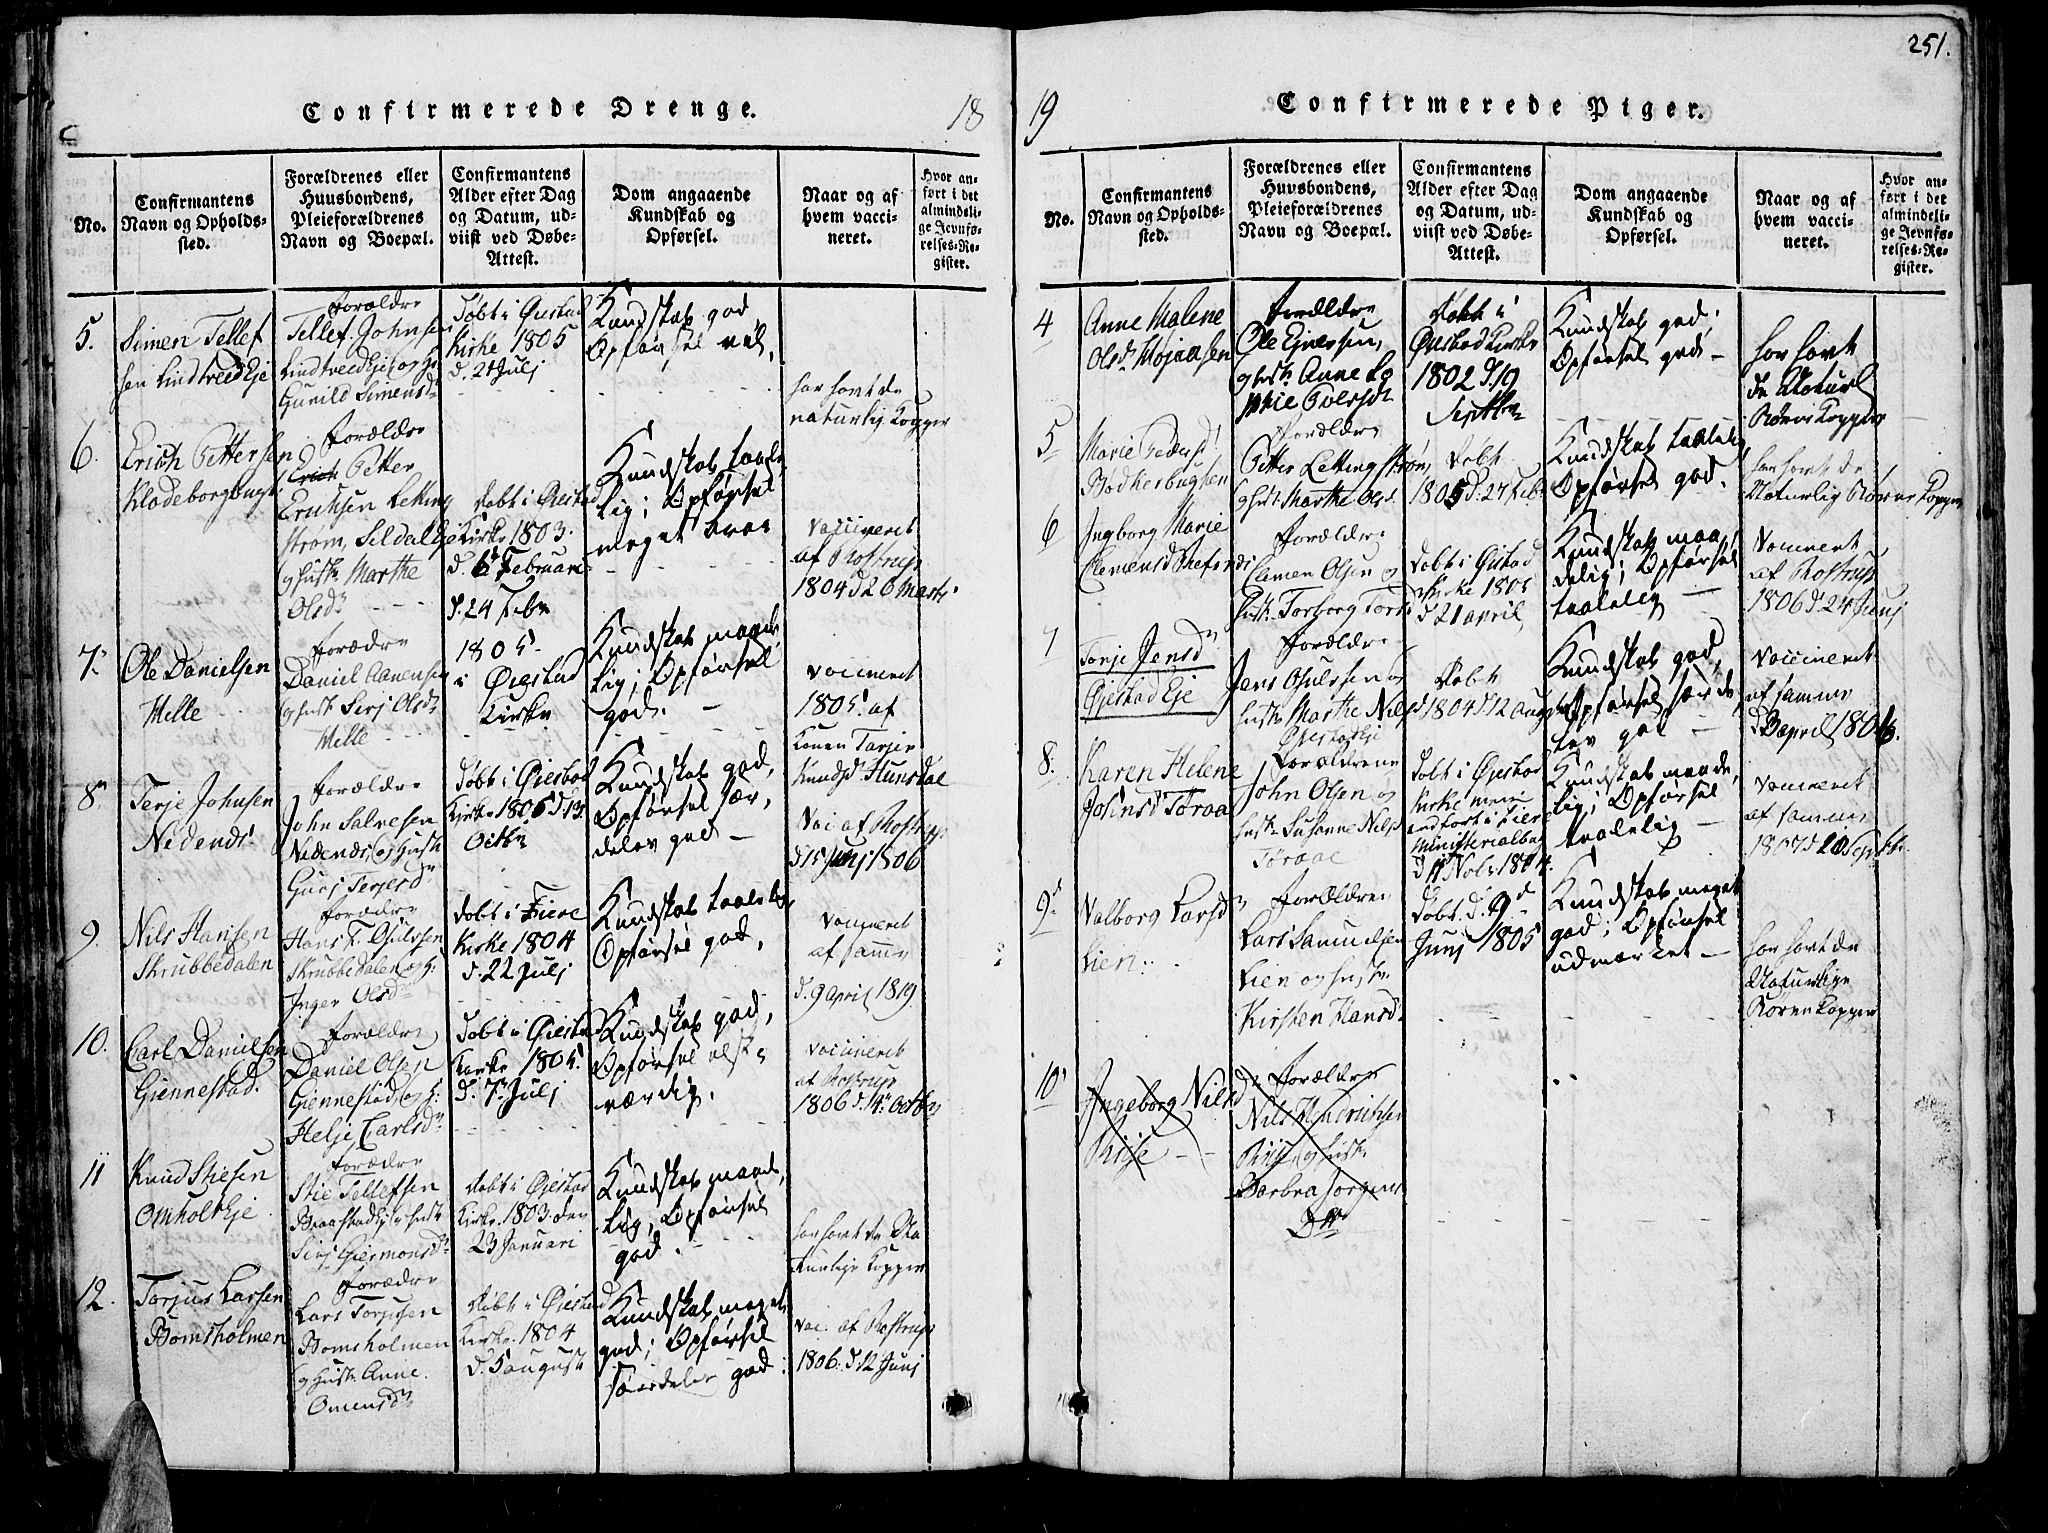 251.
Confirmerede Drenge.
18
No.
Confirmantens
Navn og Opholds-
sted.
Forældrenes eller
Huusbondens,
Pleieforældrenes
Navn og Boepæl.
Confirmantens
Alder efter Dag
og Datum, ud-
viist ved Døbe-
Attest.
Dom angaaende
Kundskab og
Opførsel.
Naar og af
hvem vacci-
neret.
Hvor an-
ført i det
almindeli-
ge Jevnfø-
relses-Re-
gister.
5.
Simen Tellef
sen Lindtveed Eje
Forældre
Tellef Johnsen
Lindtveed Eje, og H:
Gunild Simensdr
Døbt i Øiestad
Kirke 1805
d. 21 Julj
Kundskab god
Opførsel vel,
har havt de
naturlig Kopper
6.
Erich Pettersen
Klodeborgbugt
Forældre
Erich Petter
Erichsen Letting
strøm, Seldal Eje
og Hustr Marthe
Olsdr
Døbt i Øiestad
Kirke 1803.
d. 6 Februari
d. 24 Febr
Kundskab taale,
lig; Opførsel
meget brav
Vaccineret
af Rostrup
1804 d 26 Marts.
7.
Ole Danielsen
Melle
Forældre
Daniel Aanensen
og hustr Sirj Olsdr
Melle
1805
i Øiestad
Kirke
Kundskab maade,
lig; Opførsel
god.
vaccineret
1805. af
Konen Tarjer
Knudsd Hunsdal
8.
Terje Johnsen
Nedenes
Forældre
John Salvesen
Nedenes, og Hustr
Gurj Terjesdr
Døbt i Øiestad
Kirke 1806 d. 13
Octbr
Kundskab god,
Opførsel sær,
delev god
Vac af Rostrup
d 15 Junj 1806
9.
Nils Hansen
Skrubbedalen
Forældre
Hans T. Osulvsen
Skrubbedalen, og H:
Inger Olsdr
Døbt i Fiere
Kirke 1804
d. 22 Julj
Kundskab taalelig,
Opførsel god,
Vaccineret
af samme
d. 9 April 1819
10.
Carl Danielsen
Giennestad.
Forældre
Daniel Olsen
Giennestad, og H:
Helje Carlsdr
Døbt i Øiestad
Kirke 1805
d. 7 Julj
Kundskab god,
Opførsel elsk,
værdig.
vaccineret
af Rostrup
1806 d. 14 Octbr
11
Knud Stiesen
Omholt Eje
Forældre
Stie Tellefsen
Braastad Eje og hustr
Sirj Giermonsdr
Døbt i Øiestad
Kirke. 1803. den
23 Januari
Kundskab maade,
lig, Opførsel
god.
har havt de Na
turlige Kopper
12.
Torjus Larsen
Bomsholmen
Forældre
Lars Torjusen
Bomsholmen
og Hustr Anne
Omensdr
Døbt i Øiestad
Kirke. 1804
d. 5 August
Kundskab meget
god; Opførsel
særdeles god
Vac. af Rostrup
1806. d 12 Junj
19
Confirmerede Piger.
No.
Confirmantens
Navn og Opholds-
sted.
Forældrenes eller
Huusbondens,
Pleieforældrenes
Navn og Boepæl.
Confirmantens
Alder efter Dag
og Datum, ud-
viist ved Døbe-
Attest.
Dom angaaende
Kundskab og
Opførsel.
Naar og af
hvem vacci-
neret.
Hvor an-
ført i det
almindeli-
ge Jevnfø-
relses-Re-
gister.
4
Anne Malene
Olsdr
Forældre
og hustr Anne So
phie
Døbt i
Øiestad Kirke
1802 d. 19
Septbr
Kundskab god;
Opførsel god
har havt
de Natur
Børne Kopper
5
Marie Pedersd
Bødkerbugten
Forældre
Petter Lettingstrøm,
og hustr Marthe Olsd.
Døbt
1805 d. 24 Febr
Kundskab taalelig
Opførsel god.
har havt de
Naturlig Børne Kopper
6
Ingborg Marie
Clemensd
Forældre
Clemen Olsen og
Hustr Torborg
Døbt i Øiestad
Kirke 1805
d 21 April
Kundskab maa,
delig; Opførsel
taalelig
Vaccineret
af Rostrup
1806 d 24 Junj
7
Tonje Jensdr
Øjestad Eje
Forældre
Jens Osulssen og
hustr Marthe Nilsd
Øiestad Eje
Døbt
1804 d 12 Aug
Kundskab god,
Opførsel særde,
lev god
Vaccineret
af samme
d 3 April 1806.
8.
Karen Helene
Johnsd Tøraa
Forældrene
John Olsen og
hustr Susanne Nilsd
Tøraae
Døbt i Øiestad
Kirke men
andført i Fiere
Ministerialbog
d 11 Nobr 1804.
Kundskab maade,
lig; Opførsel
taalelig
Vaccineret
af samme
1807 d 20 Septbr
9.
Valborg Larsdr
Lien
Forældre
Lars Samuelsen
Lien og hustr
Kirsten Hansd.
Døbt. d. 9d
Junj 1805
Kundskab meget
god; Opførsel
udmærket
har havt de
Naturlige
Børne Kopper
10
Ingeborg Nilsdr
Riise
Forældre
Nils Henrichsen
Riise og hustr
Barbra Jørgens
Dtr